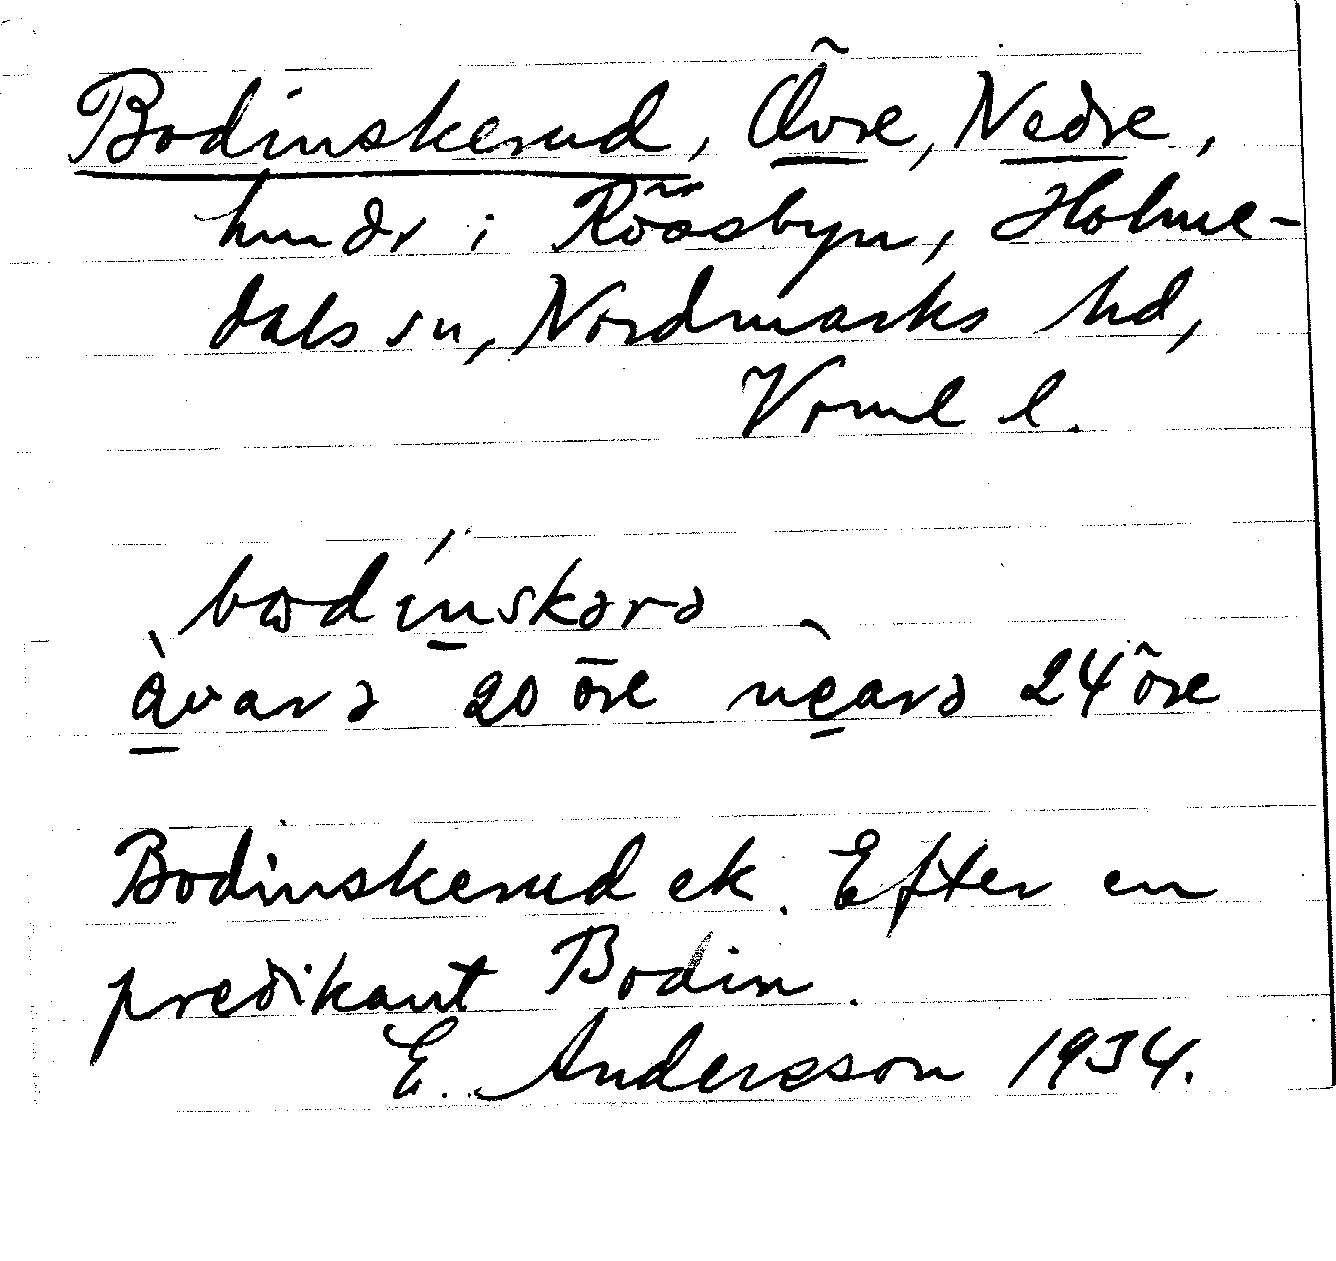 Bodinskerud, Övre, Nedre,
hmdr i Röåsbyn, Holme-
dals sn, Nordmarks hd,
Vrml l.
bωdínskərə
ə̀varə 20 öre nèarə 24 öre
Bodinskerud ek. Efter en
predikant Bodin.
E. Andersson 1934.